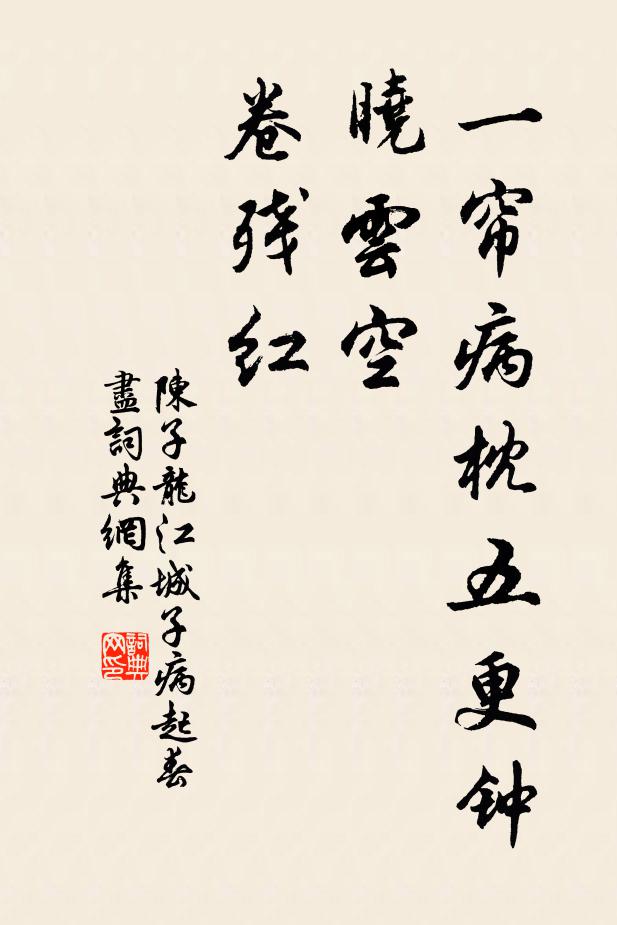 一帘病枕五更钟
曉雲空
卷残红
陳子龍江城子病起春
盡詞典網集
詞典网印